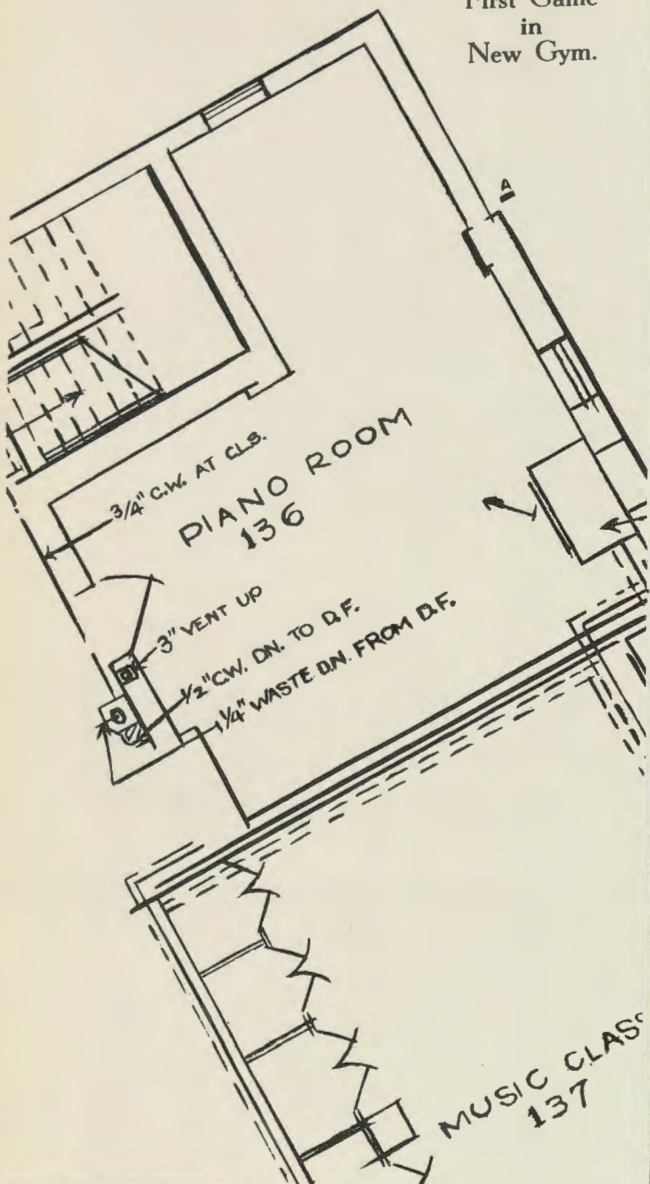 First Game
in
New Gym.
A
3/4" C.W. AT CLS.
PIANO ROOM
136
3" VENT UP
1/2" C.W. DN. TO D.F.
1 1/4" WASTE DN. FROM D.F.
MUSIC CLASS
137